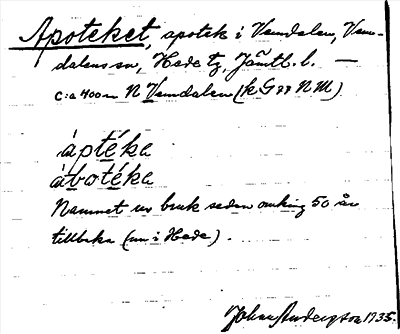 Apoteket, apotek i Vemdalen, Vem-
dalens sn, Hede tg, Jämtl. l. —
c:a 400 m N Vemdalen (k G 77 N M)
áptéka
ábotéka
Namnet ur bruk sedan omkring 50 år
tillbaka (nu i Hede).
Johan Andersson 1935.